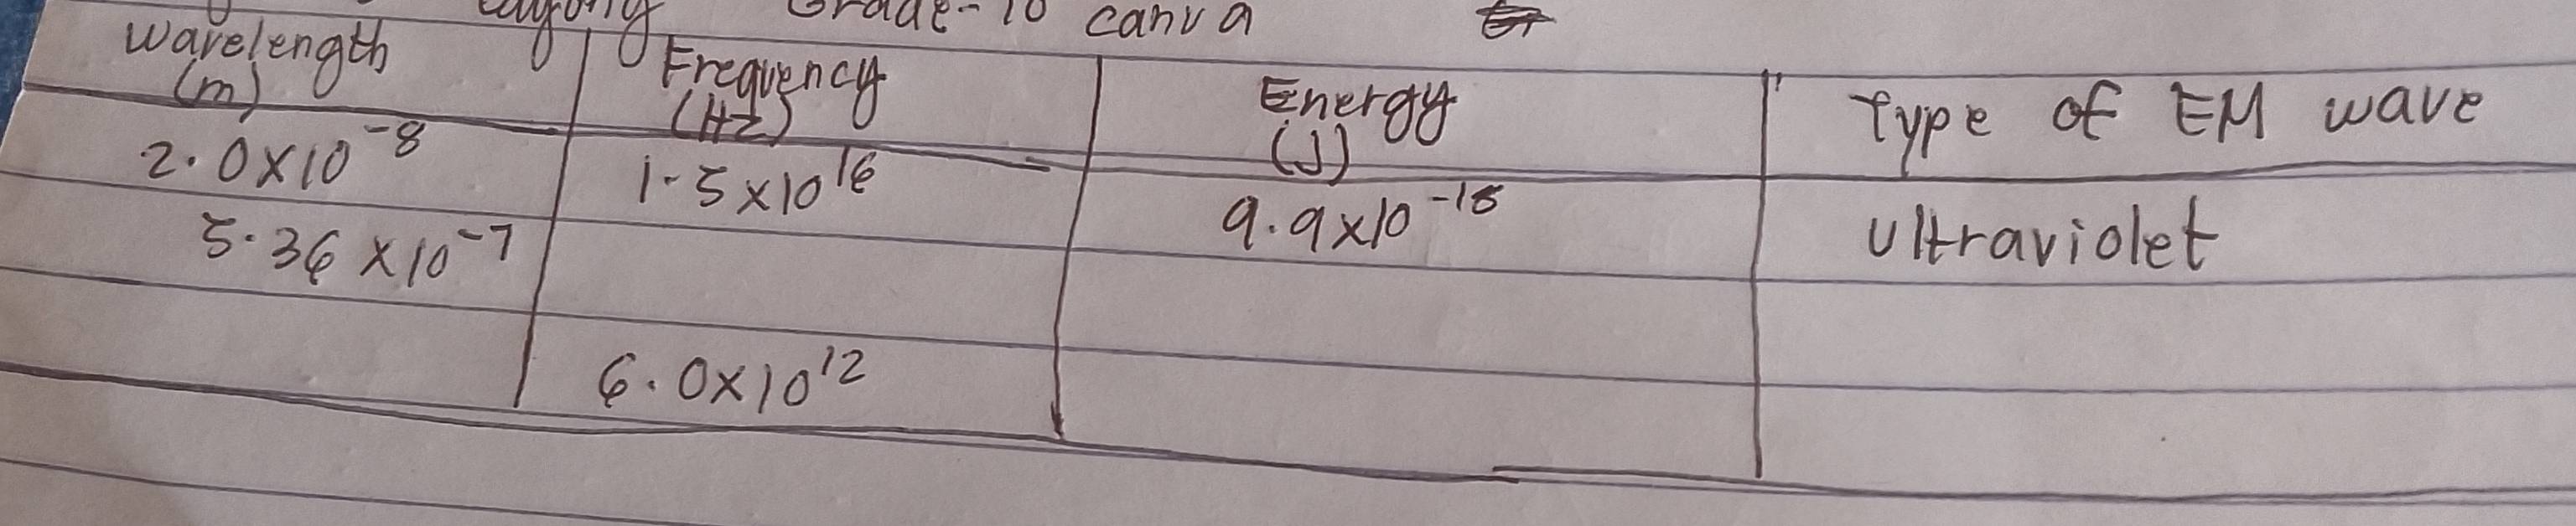 Grade-10 canva
Wavelength (m) Frequency (Hz) Energy (J) Type of EM wave
2.0x10^-8 1.5x10^16 9.9x10^-18 Ultraviolet
5.36x10^-7
6.0x10^12